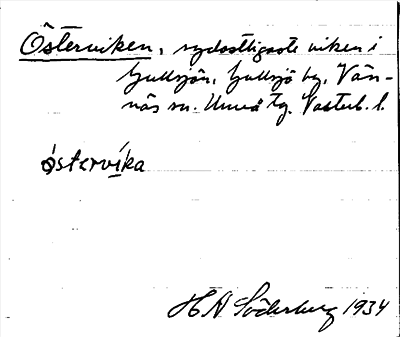 Österviken, sydostligaste viken i
Gullsjön, Gullsjö by, Vän-
näs sn. Umeå tg. Västerb. l.
östervika
H A Söderberg 1934